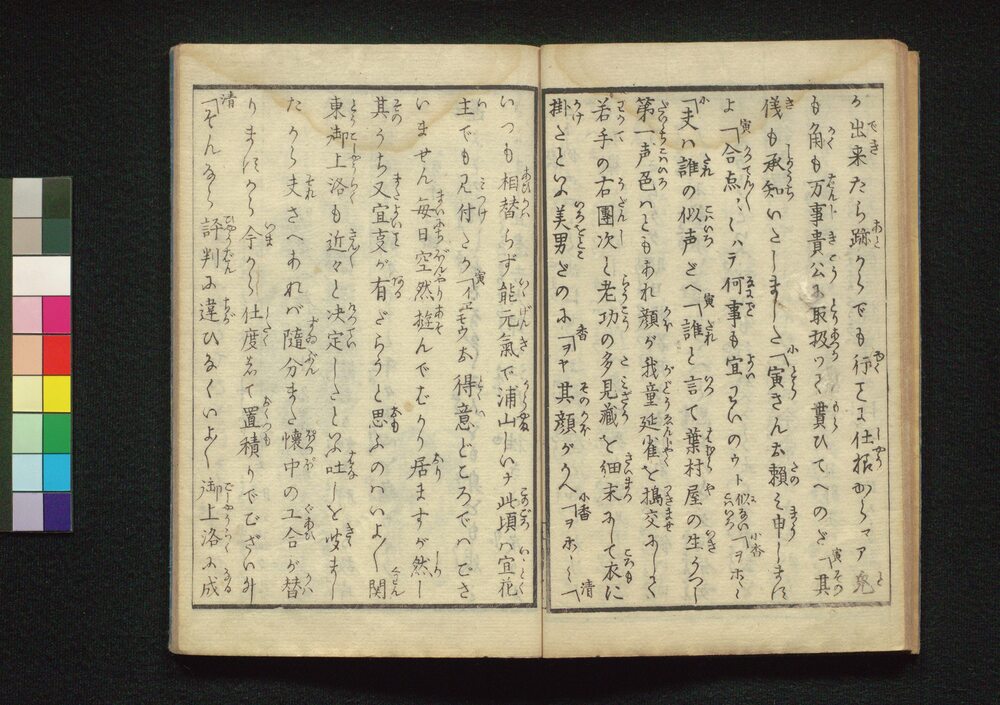 が出来たら跡からでも行さま仕掛からマア兎
も角も万事貴公に取扱つて貰ひてへのだ 寅「其
儀も承知いたしました 小「寅さん玄頼み申します
よ 寅「合点〳〵ハテ何事も宜ういのウト似ない こわいろ 小香「ヲホヽヽ
小「夫ハ誰の似声だへ 寅「誰と言て葉村屋の生うつし
第一声色ハともあれ顔が我童延雀を搗交にして
若手の右團次と老功の多見蔵を佃末にして衣に
掛たといふ美男だのに 香「ヲヤ其顔がかへ 小香「ヲホヽヽ 清「
いつも相替らず能元氣で浦山しいナ此頃ハ宜花
主でも見付たか 寅「イヱモウお得意どころでハござ
いません毎日空然遊んでばかり居ますが然し
其うち又宜支が有だらうと思ふのハいよ〳〵関
東御上洛も近々と决定したといふ吐しを聞まし
たから夫さへあれバ随分また懐中の工合が替
りますから今から仕度して置積りでございます
清「そんなら評判に違ひなくいよ〳〵御上洛に成